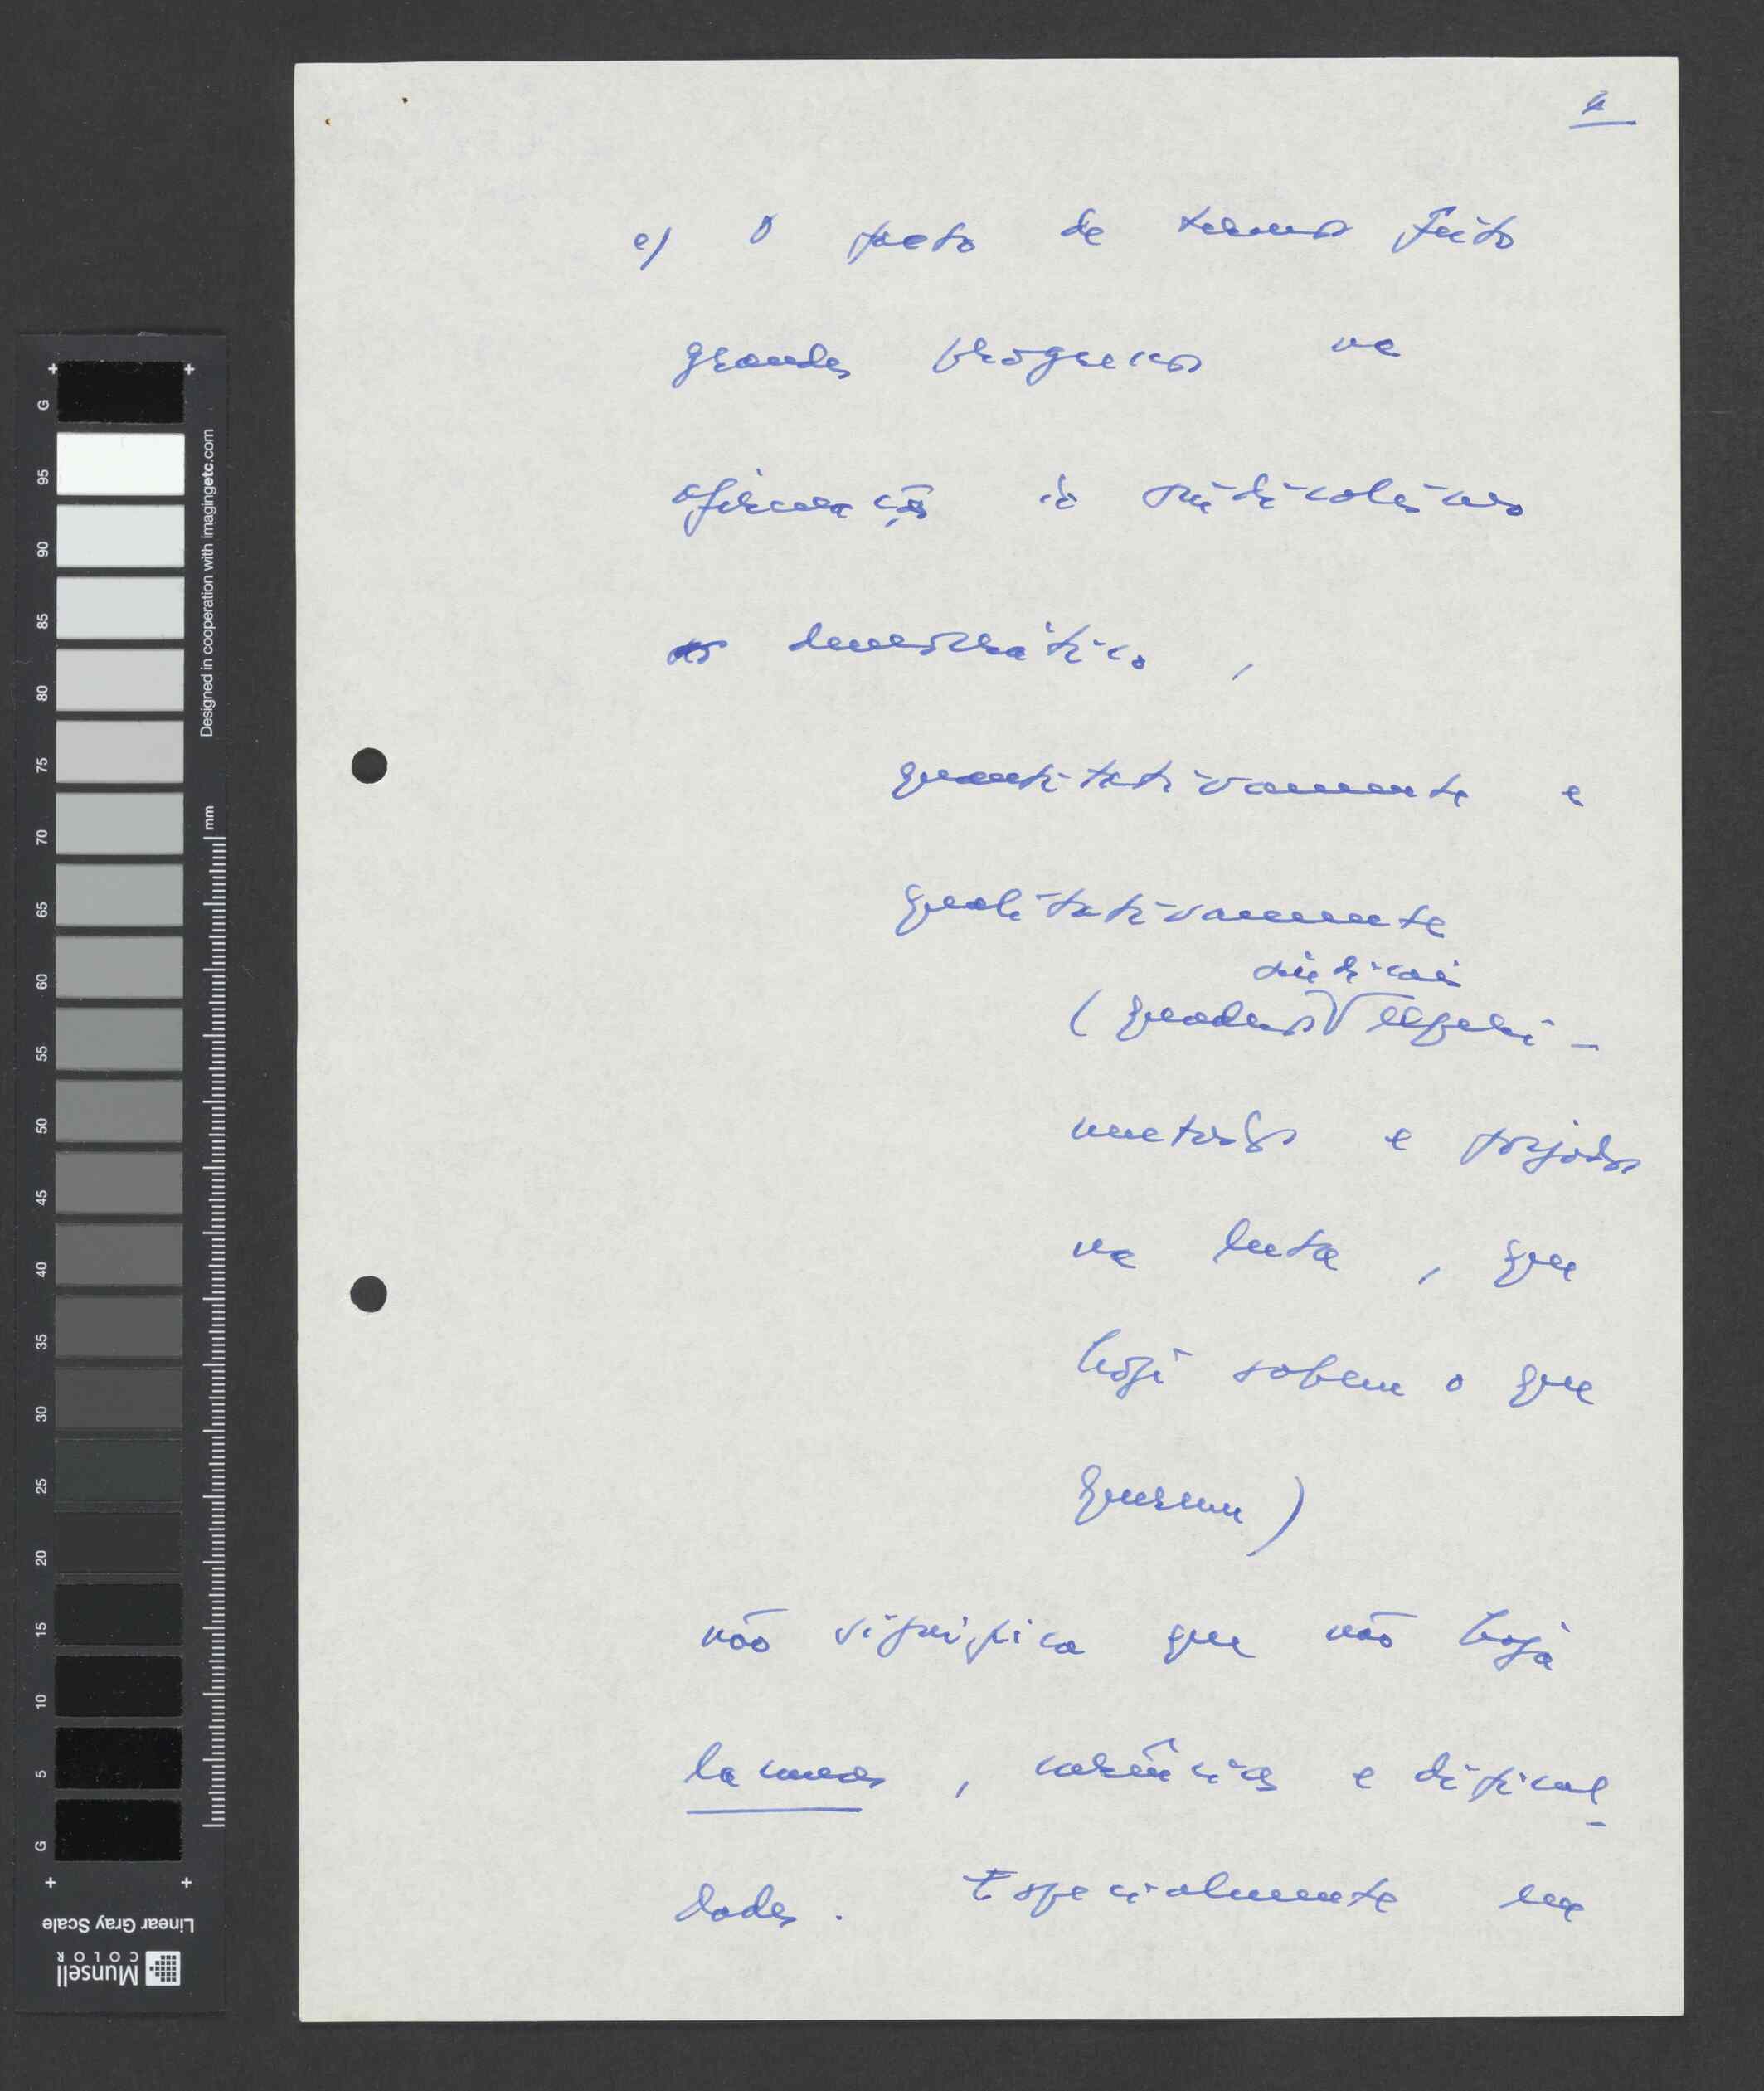 4
e) O facto de termos feito
grandes progressos na
afirmação do sindicalismo
democrático,
quantitativamente e
qualitativamente
sindicais
(quadros experi-
mentados e forjados
na luta, que
hoje sabem o que
querem)
não significa que não haja
lacunas, carências e dificul-
dades. Especialmente na
G 95 90 85 80 75 70 65 60 55 50 45 40 35 30 25 20 15 10 5 G
Designed in cooperation with imagingetc.com
mm
Linear Gray Scale
Munsell
COLOR